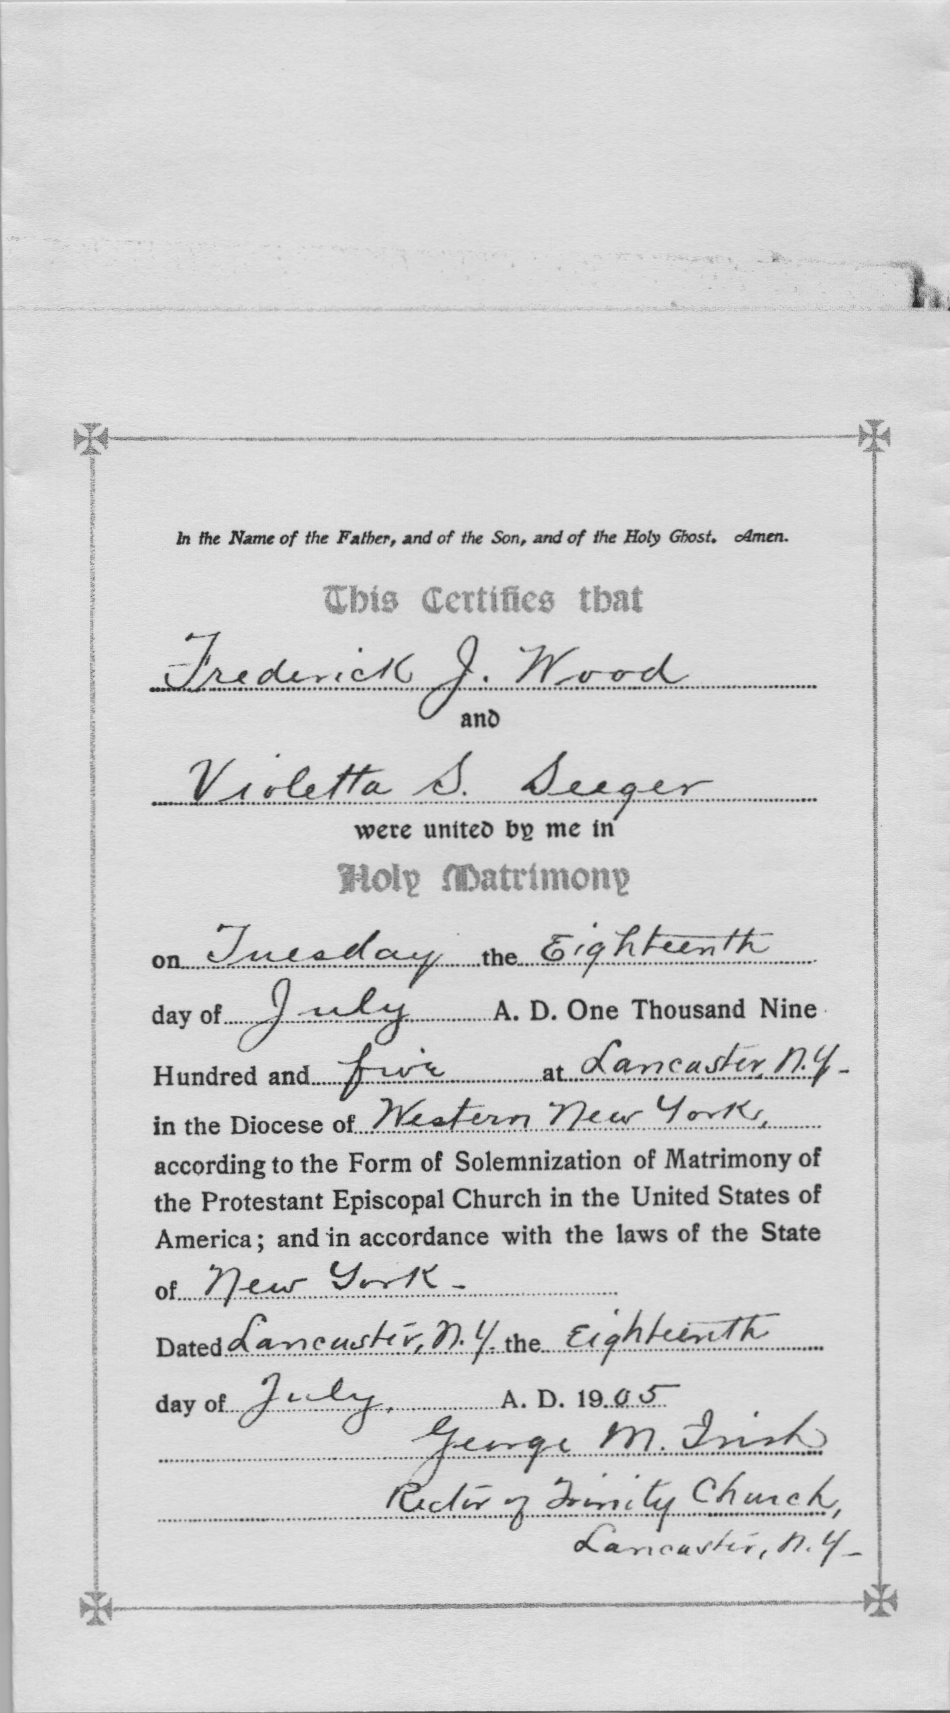 In the Name of the Father, and of the Son, and of the Holy Ghost. Amen.
This Certifies that
Frederick J. Wood
and
Violetta S. Seeger
were united by me in
Holy Matrimony
on Tuesday the Eighteenth
day of July A. D. One Thousand Nine
Hundred and five at Lancaster, N.Y.
in the Diocese of Western New York,
according to the Form of Solemnization of Matrimony of
the Protestant Episcopal Church in the United States of
America; and in accordance with the laws of the State
of New York.
Dated Lancaster, N.Y. the Eighteenth
day of July, A. D. 1905
George M. Irish
Rector of Trinity Church,
Lancaster, N.Y.